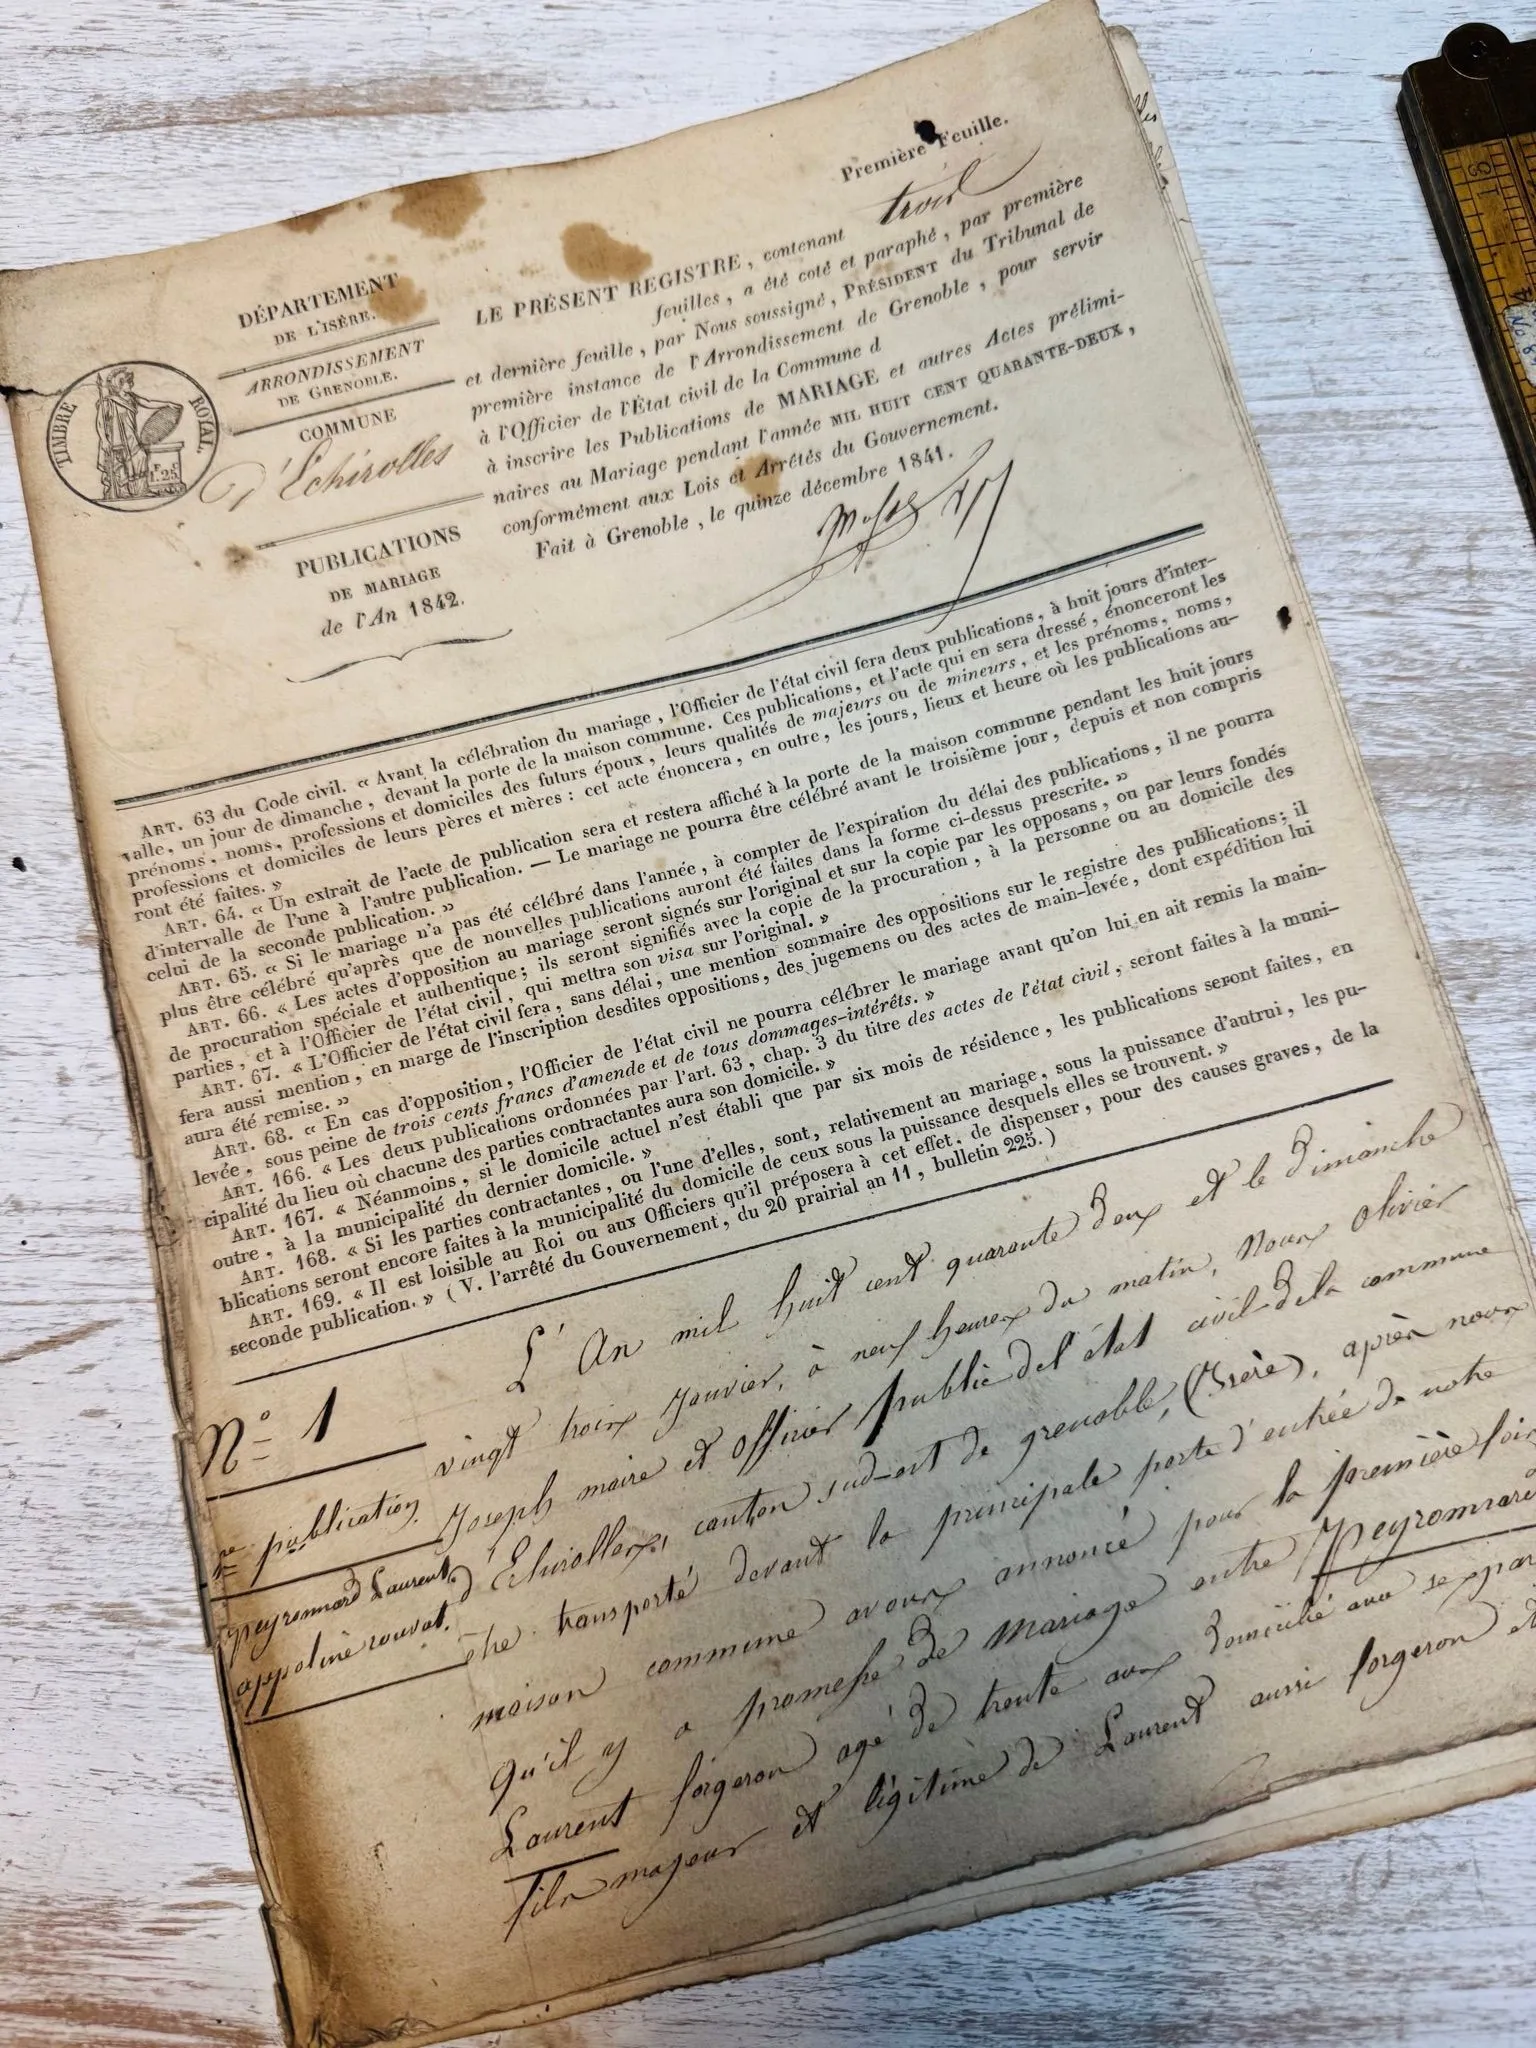 Première Feuille.
DÉPARTEMENT
DE L'ISÈRE.
ARRONDISSEMENT
DE GRENOBLE.
COMMUNE
D'Échirolles
TIMBRE ROYAL
1F.25C
PUBLICATIONS
DE MARIAGE
de l'An 1842.
LE PRÉSENT REGISTRE, contenant trois
feuilles, a été coté et paraphé, par première
et dernière feuille, par Nous soussigné, PRÉSIDENT du Tribunal de
première instance de l'Arrondissement de Grenoble, pour servir
à l'Officier de l'État civil de la Commune d
à inscrire les Publications de MARIAGE et autres Actes prélimi-
naires au Mariage pendant l'année MIL HUIT CENT QUARANTE-DEUX,
conformément aux Lois et Arrêtés du Gouvernement.
Fait à Grenoble, le quinze décembre 1841.
ART. 63 du Code civil. « Avant la célébration du mariage, l'Officier de l'état civil fera deux publications, à huit jours d'inter-
valle, un jour de dimanche, devant la porte de la maison commune. Ces publications, et l'acte qui en sera dressé, énonceront les
prénoms, noms, professions et domiciles des futurs époux, leurs qualités de majeurs ou de mineurs, et les prénoms, noms,
professions et domiciles de leurs pères et mères : cet acte énoncera, en outre, les jours, lieux et heure où les publications au-
ront été faites. »
ART. 64. « Un extrait de l'acte de publication sera et restera affiché à la porte de la maison commune pendant les huit jours
d'intervalle de l'une à l'autre publication. — Le mariage ne pourra être célébré avant le troisième jour, depuis et non compris
celui de la seconde publication. »
ART. 65. « Si le mariage n'a pas été célébré dans l'année, à compter de l'expiration du délai des publications, il ne pourra
plus être célébré qu'après que de nouvelles publications auront été faites dans la forme ci-dessus prescrite. »
ART. 66. « Les actes d'opposition au mariage seront signés sur l'original et sur la copie par les opposans, ou par leurs fondés
de procuration spéciale et authentique; ils seront signifiés avec la copie de la procuration, à la personne ou au domicile des
parties, et à l'Officier de l'état civil, qui mettra son visa sur l'original. »
ART. 67. « L'Officier de l'état civil fera, sans délai, une mention sommaire des oppositions sur le registre des publications; il
fera aussi mention, en marge de l'inscription desdites oppositions, des jugemens ou des actes de main-levée, dont expédition lui
aura été remise. »
ART. 68. « En cas d'opposition, l'Officier de l'état civil ne pourra célébrer le mariage avant qu'on lui en ait remis la main-
levée, sous peine de trois cents francs d'amende et de tous dommages-intérêts. »
ART. 166. « Les deux publications ordonnées par l'art. 63, chap. 3 du titre des actes de l'état civil, seront faites à la muni-
cipalité du lieu où chacune des parties contractantes aura son domicile. »
ART. 167. « Néanmoins, si le domicile actuel n'est établi que par six mois de résidence, les publications seront faites, en
outre, à la municipalité du dernier domicile. »
ART. 168. « Si les parties contractantes, ou l'une d'elles, sont, relativement au mariage, sous la puissance d'autrui, les pu-
blications seront encore faites à la municipalité du domicile de ceux sous la puissance desquels elles se trouvent. »
ART. 169. « Il est loisible au Roi ou aux Officiers qu'il préposera à cet effet, de dispenser, pour des causes graves, de la
seconde publication. » (V. l'arrêté du Gouvernement, du 20 prairial an 11, bulletin 225.)
N° 1
1re publication
peyronnard Laurent
appoline rouvat.
L'An mil huit cent quarante deux et le Dimanche
vingt trois Janvier, à neuf heures du matin, Nous Olivier
Joseph maire et Officier public del'état civil dela commune
d'Echirolles, canton sud-est de grenoble, (Isère), après nous
être transporté devant la principale porte d'entrée de notre
maison commune avons annoncé pour la première fois
Qu'il y a promesse de Mariage entre Peyronnard
Laurent forgeron agé de trente ans Domicilié avec se
fils majeur et légitime de Laurent aussi forgeron et